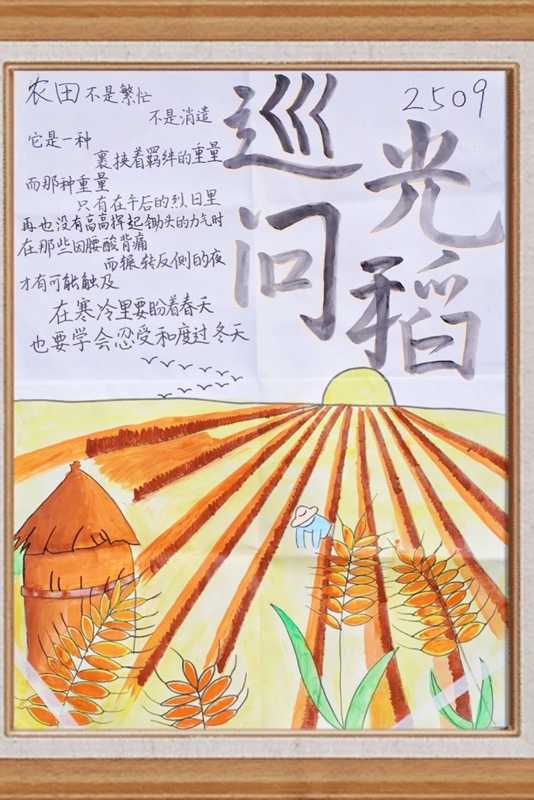 农田不是繁忙
不是消遣
它是一种
裹挟着羁绊的重量
而那种重量
只有在午后的烈日里
再也没有高高挥起锄头的力气时
在那些因腰酸背痛
而辗转反侧的夜
才有可能触及
在寒冷里要盼着春天
也要学会忍受和度过冬天
巡光
问稻
2509